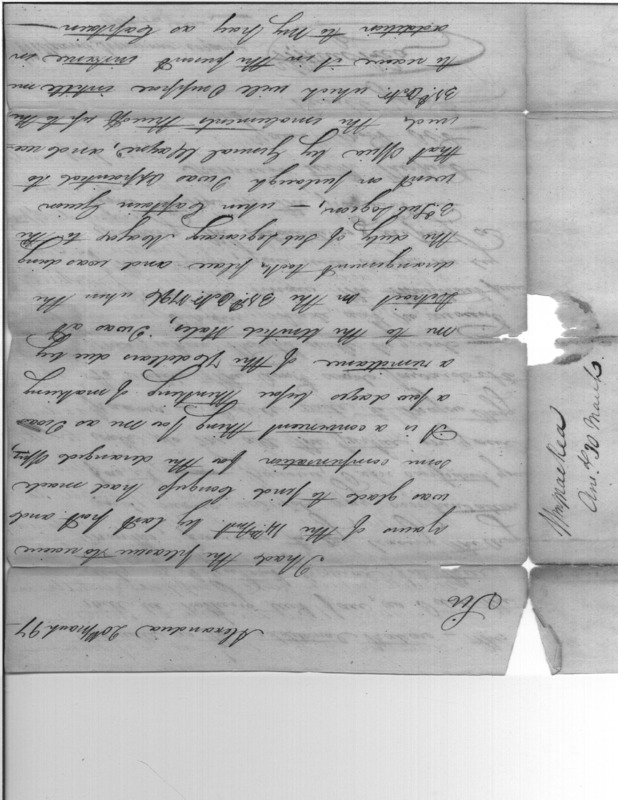 Alexandria 20th March 97
Sir
I had the pleasure to receive
yours of the 14th Inst by last post and
was glad to find Congress had made
some compensation for the deranged Officers,
it is a convenient thing for me as I was
a few days before thinking of making
a remittance of the Dollars due by
me to the United States, I was at
Detroit on the 31st Octr 1796 when the
derangement took place and was doing
the duty of Sub Legionary Major to the
3d Sub Legion, — when Captain
went on furlough I was appointed to
that office by General Wayne, and
the emoluments thereof up to the
31st Octr which will I suppose intitle me
to receive it in the present instance in
addition to my pay as Captain
Ansd 30 March